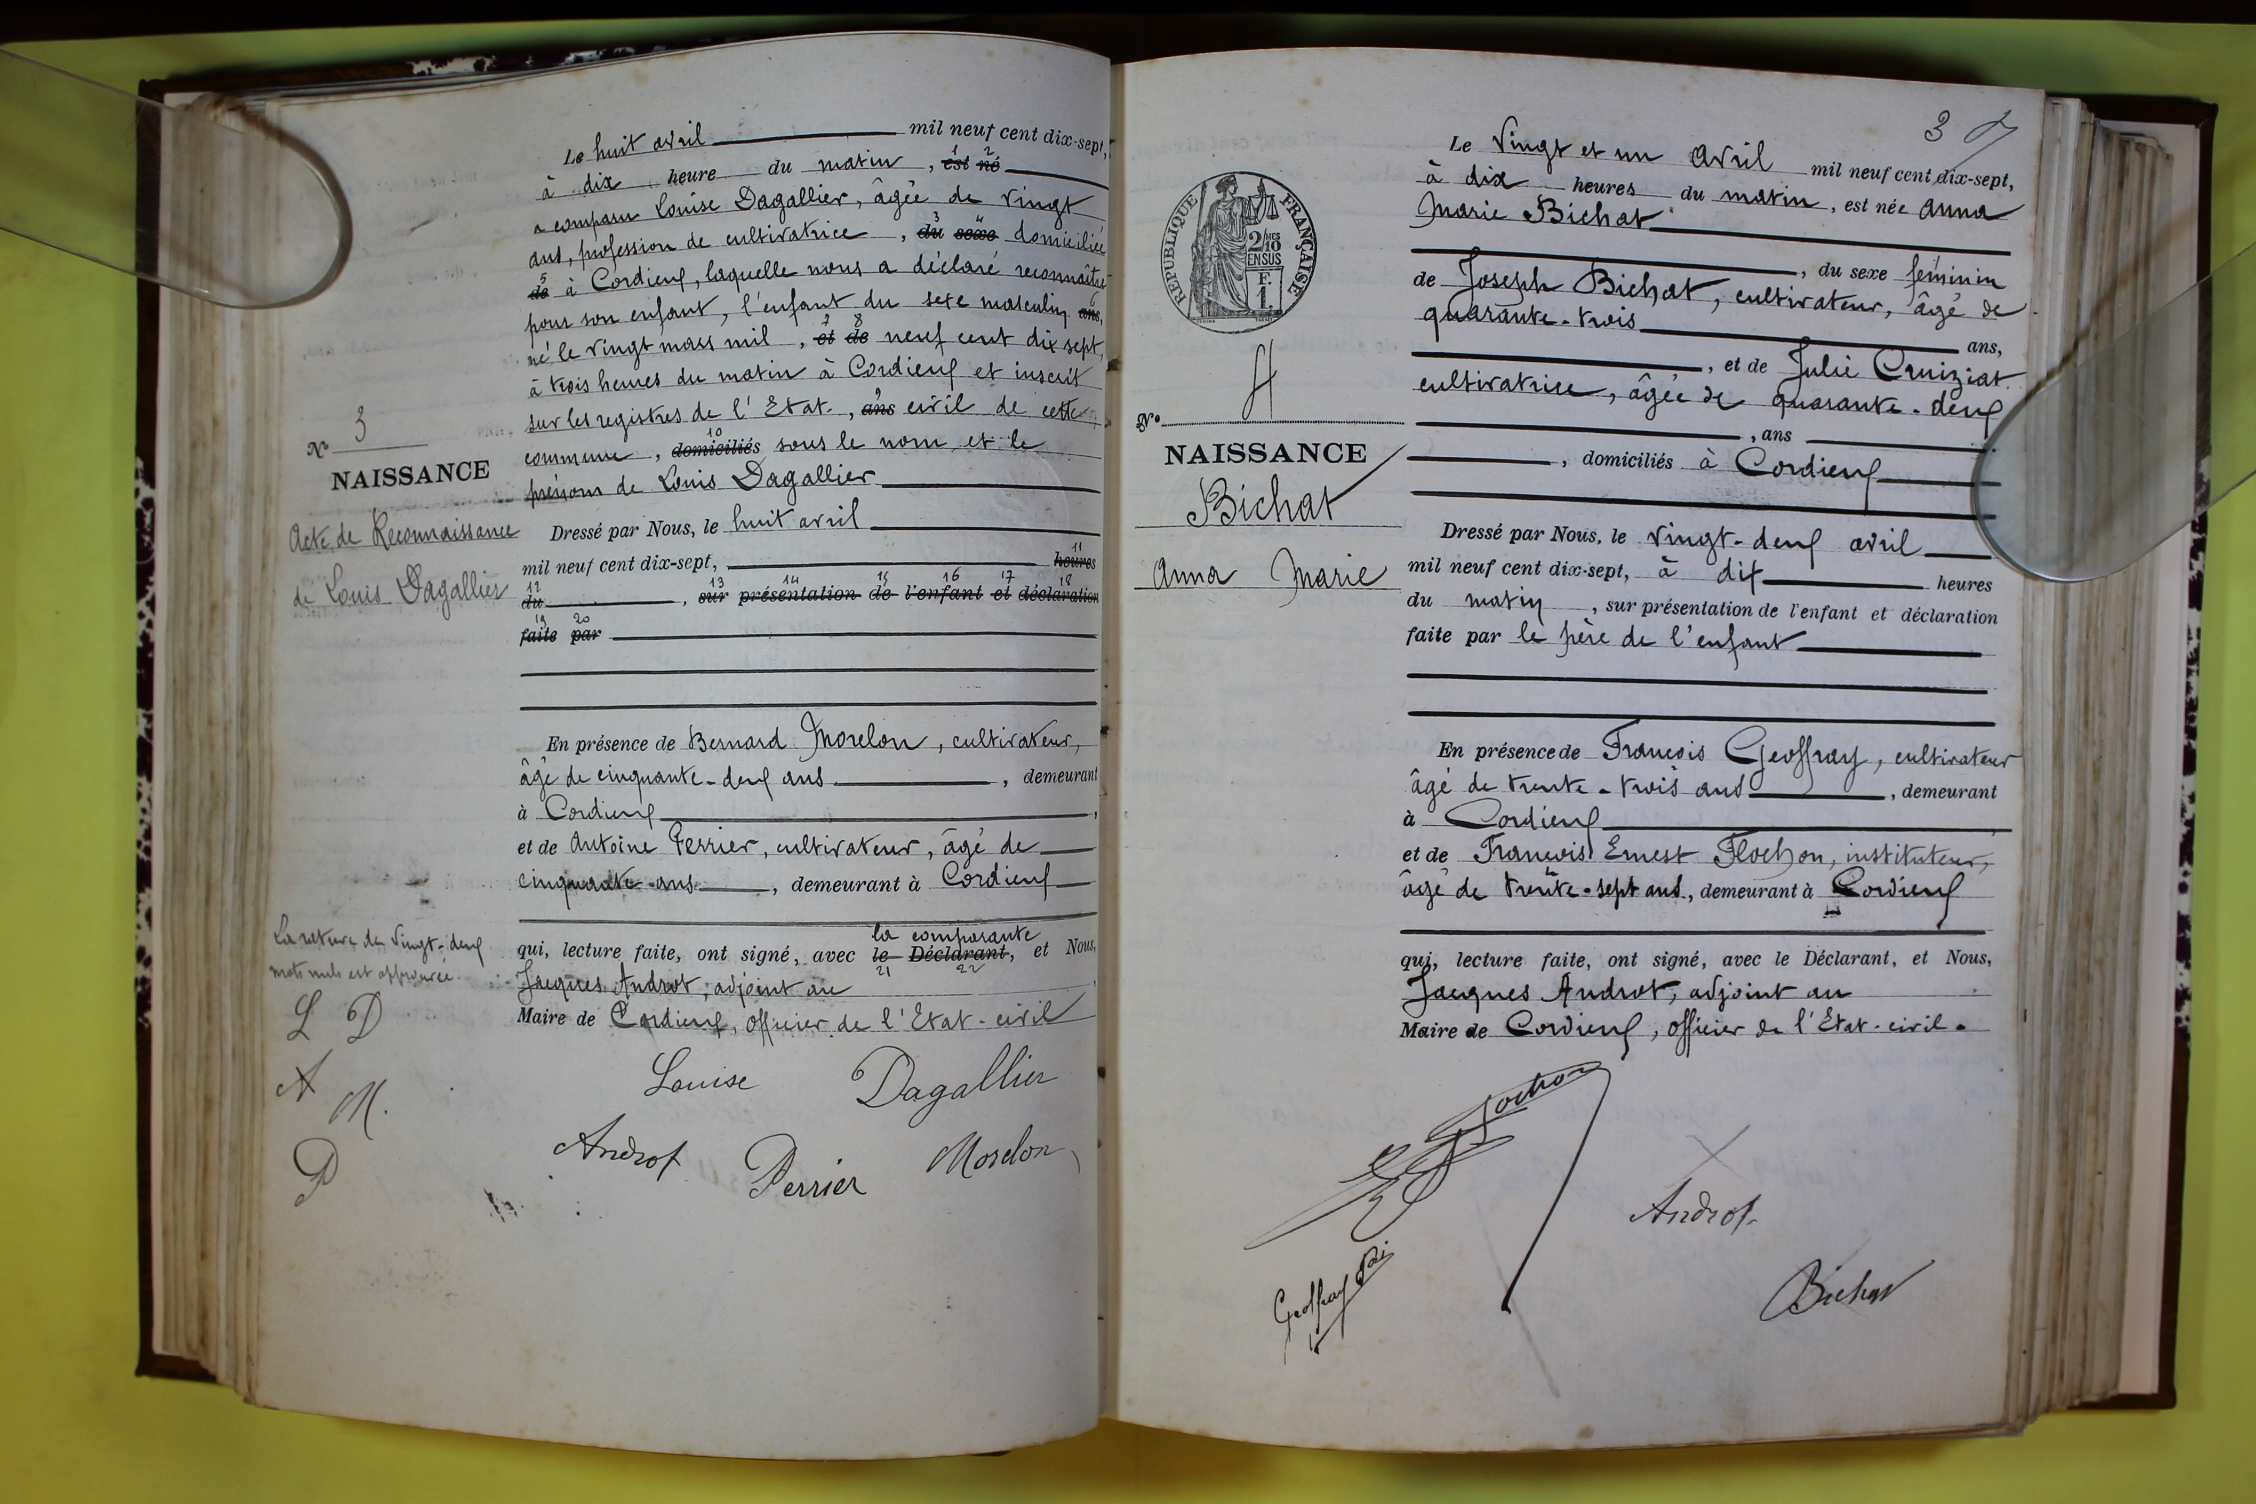 Le huit avril mil neuf cent dix-sept,
à dix heure du matin, est 1 né 2
a comparu Louise Dagallier, âgée de vingt
ans, profession de cultivatrice, du 3 sexe 4 domiciliée
de 5 à Cordieux, laquelle nous a déclaré reconnaître
pour son enfant, l'enfant du sexe masculin ans, 6
né le vingt mars mil, et 7 de 8 neuf cent dix sept,
à trois heures du matin à Cordieux et inscrit
sur les registres de l'Etat-, ans 9 civil de cette
commune, domiciliés 10 sous le nom et le
prénom de Louis Dagallier
N° 3
NAISSANCE
Acte de Reconnaissance
de Louis Dagallier
Dressé par Nous, le huit avril
mil neuf cent dix-sept, heures 11
du 12, sur 13 présentation 14 de 15 l'enfant 16 et 17 déclaration 18
faite 19 par 20
En présence de Bernard Morelon, cultivateur,
âgé de cinquante-deux ans, demeurant
à Cordieux,
et de Antoine Perrier, cultivateur, âgé de
cinquante ans, demeurant à Cordieux
la comparante
qui, lecture faite, ont signé, avec le 21 Déclarant 22, et Nous,
Jacques Androt, adjoint au
Maire de Cordieux, officier de l'Etat-civil
La rature de vingt-deux
mots nuls est approuvée
L D
A M.
P
Louise Dagallier
Androt Perrier Morelon
3
Le vingt et un avril mil neuf cent dix-sept,
à dix heures du matin, est née Anna
Marie Bichat
, du sexe féminin
de Joseph Bichat, cultivateur, âgé de
quarante-trois ans,
, et de Julie Cruiziat
cultivatrice, âgée de quarante-deux
, ans
, domiciliés à Cordieux
RÉPUBLIQUE FRANÇAISE
2/10 MES
EN SUS
F.
1.
N° 4
NAISSANCE
Bichat
Anna Marie
Dressé par Nous, le vingt-deux avril
mil neuf cent dix-sept, à dix heures
du matin, sur présentation de l'enfant et déclaration
faite par le père de l'enfant
En présence de François Geoffray, cultivateur
âgé de trente-trois ans, demeurant
à Cordieux
et de François Ernest Flochon, instituteur,
âgé de trente-sept ans, demeurant à Cordieux
qui, lecture faite, ont signé, avec le Déclarant, et Nous,
Jacques Androt, adjoint au
Maire de Cordieux, officier de l'Etat-civil.
Flochon
Androt
Geoffray
Bichat